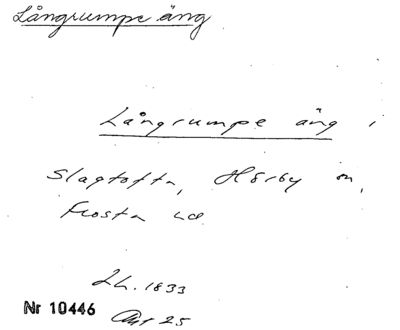 Långrumpe äng
Långrumpe äng i
Slagtofta, Hörby sn,
Frosta hd
Lh. 1833
Nr 10446
Akt 25